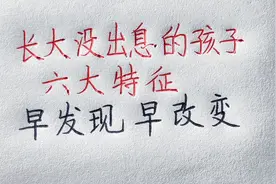 长大没出息的孩子
六大特征
早发现 早改变